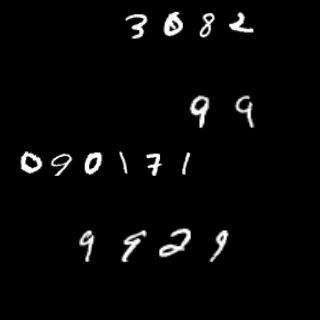 3082
99
090171
9929